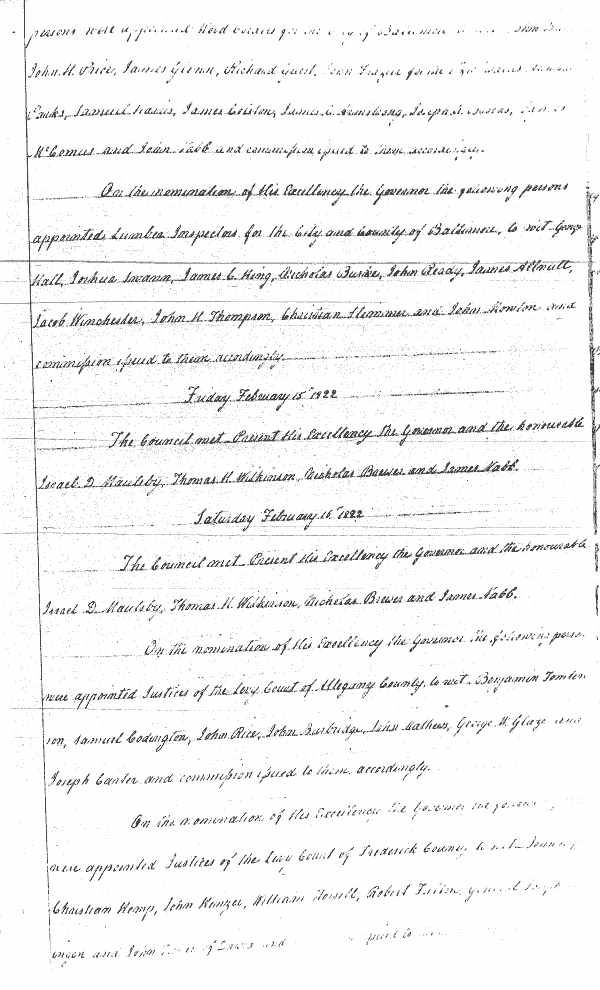 persons were appointed Wood Corders for the City of Baltimore to wit
John H. Price, James Glenn, Richard Guest, John Frazier for the
Parks, Samuel Harris, James Colston, James C. Armstrong, Joseph
McComus and John Tabb and commission issued to them accordingly.
On the nomination of His Excellency the Governor the following persons
appointed Lumber Inspectors for the City and County of Baltimore, to wit George
Hall, Joshua Swann, James C. King, Nicholas Burke, John Ready, James Allnutt,
Jacob Winchester, John H. Thompson, Christian Slemmer and John and
commission issued to them accordingly.
Friday February 15th 1822
The Council met Present His Excellency the Governor and the honourable
Israel D. Maulsby, Thomas H. Wilkinson, Nicholas Brewer and James Nabb.
Saturday February 16th 1822
The Council met Present His Excellency the Governor and the honourable
Israel D. Maulsby, Thomas H. Wilkinson, Nicholas Brewer and James Nabb.
On the nomination of His Excellency the Governor the following persons
were appointed Justices of the Levy Court of Allegany County, to wit Benjamin Tomlin
son, Samuel Codington, John Rice, John Burbridge, John Mathews, George H. Glaze and
Joseph Carter and commission issued to them accordingly.
On the nomination of His Excellency the Governor the
were appointed Justices of the Levy Court of Frederick County to wit
Christian Kemp, John Kunzer, William Howell, Robert
and John of David and issued to